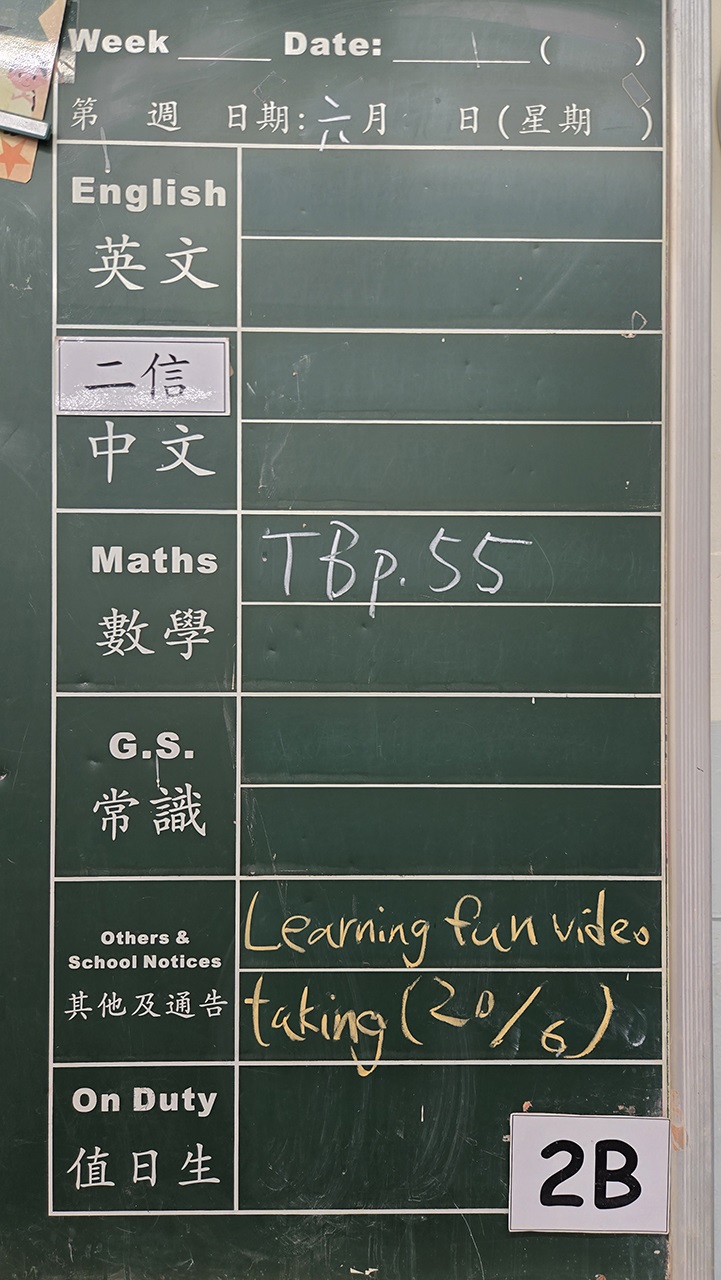 Week _____ Date: _________ (      )
第 週 日期:六月 日(星期 )
English
英文
二信
中文
Maths
TB p.55
數學
G.S.
常識
Others &
School Notices
其他及通告
Learning fun video
taking (20/6)
On Duty
值日生
2B